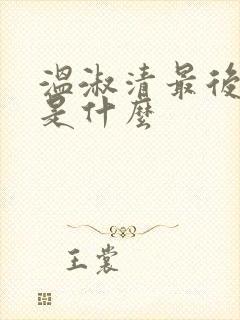 溫淑清最後
是什麼
王裳